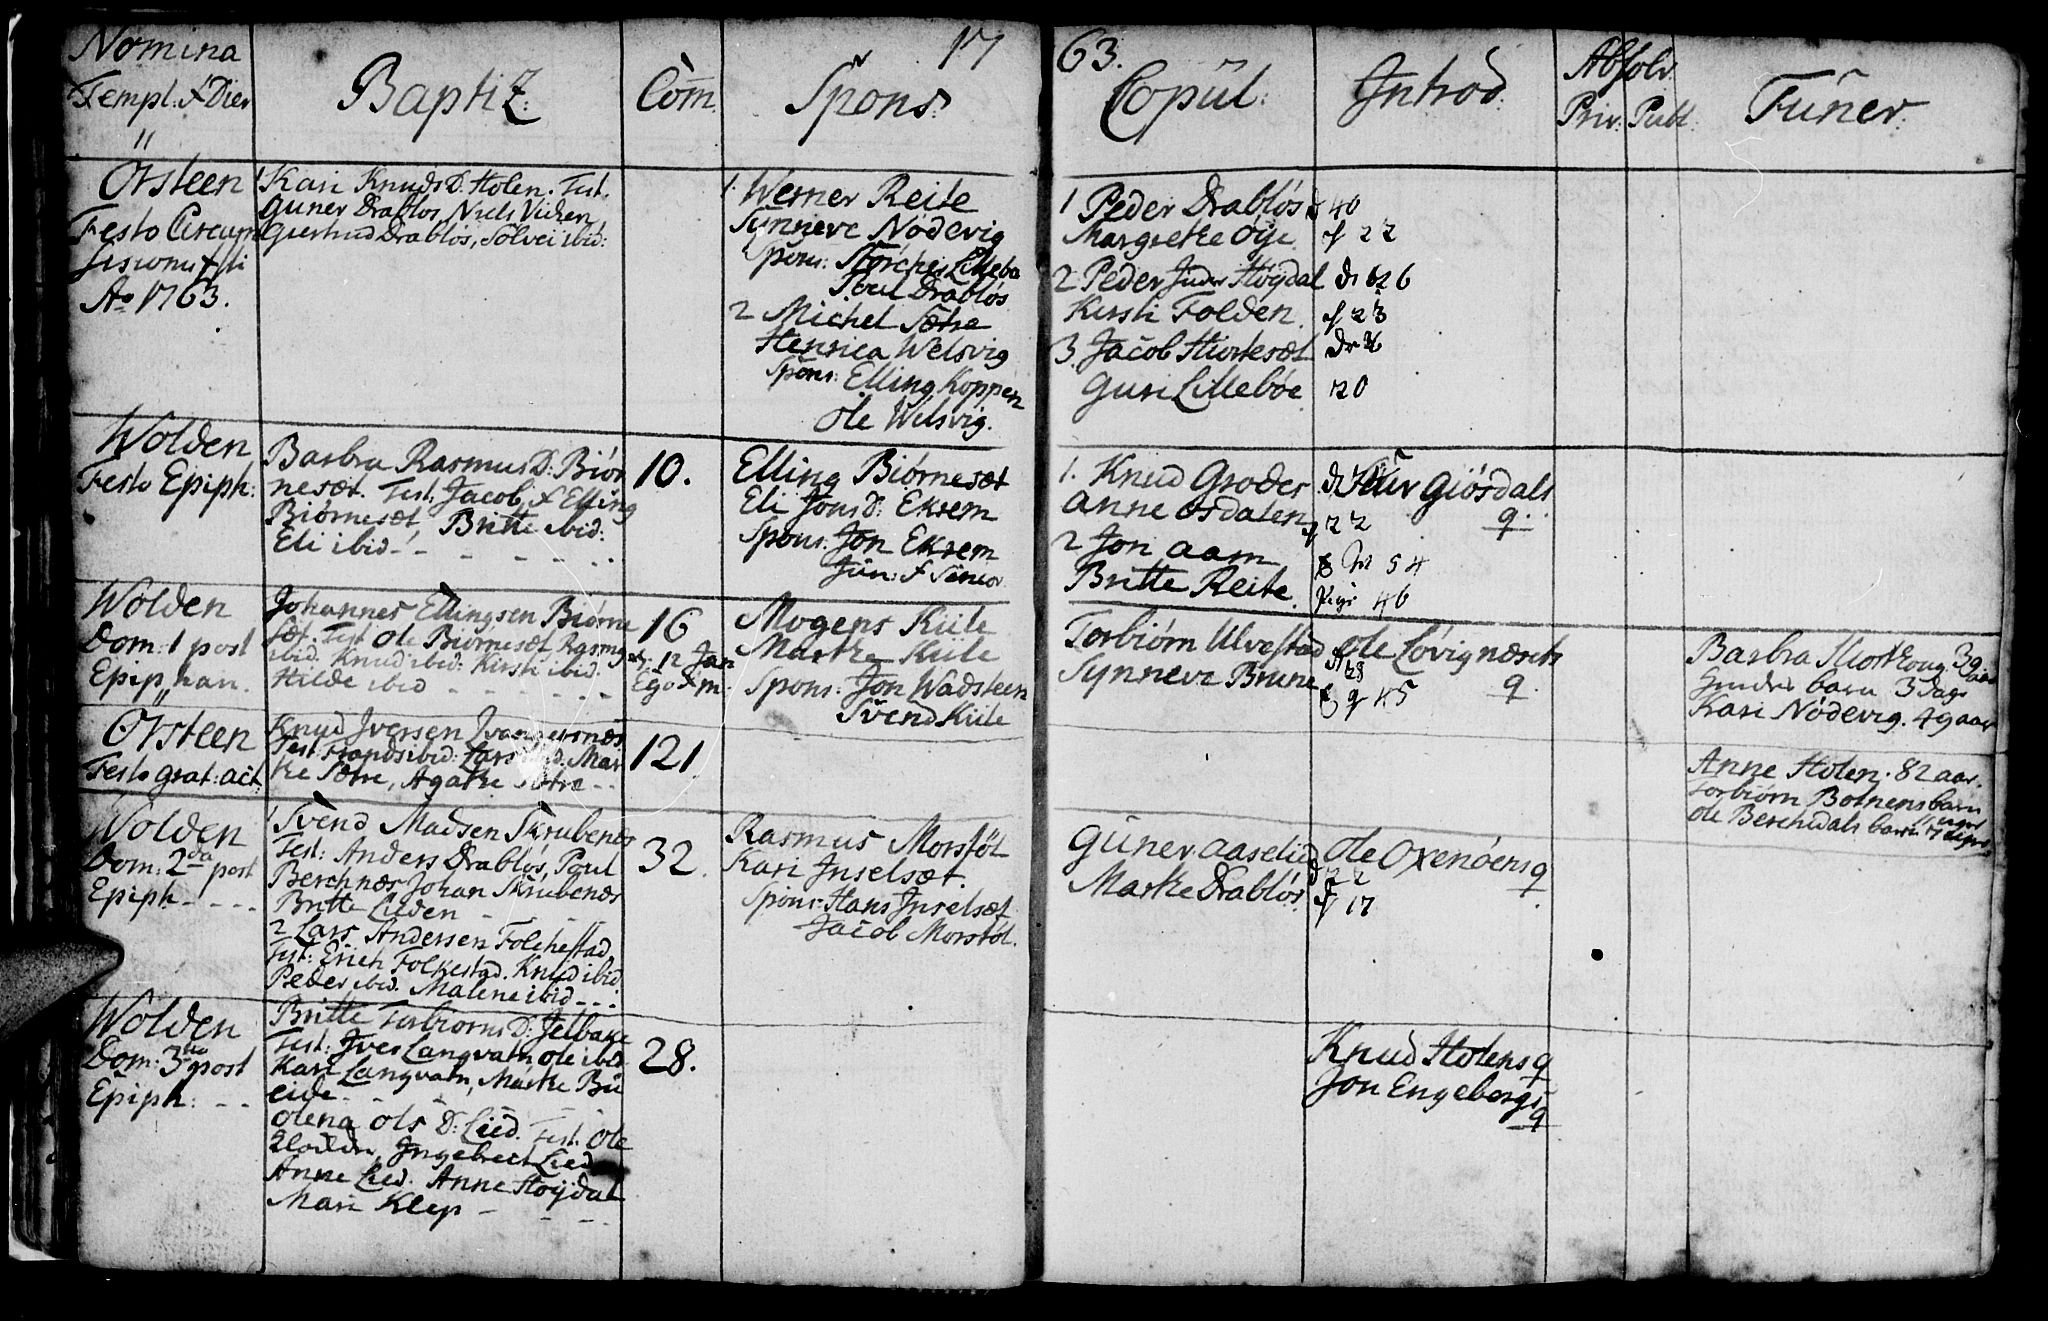 17 63.
Nomina
Templ: & Dier
Baptiz:
Com̄.
Spons:
Copul:
Introd:
Absolv.
Priv: Publ:
Funer:
Örsteen
Festo Circum
sisionis
Ao 1763.
1 Kari Knuds D. Holen. Test.
Guner Drabløs, Niels Vichen,
Giertrud Drabløs, Solvei ibid:
1. Werner Reite
Synneve Nødevig
Spons: Størcher Lillebø
Poul Drabløs
2 Michel Sætre
Henrica Welsvig
Spons: Elling Koppen
Ole Welsvig.
1 Peder Drabløs
Margrethe Øye
2 Peder Høydal
Kirsti Folden.
3. Jacob Hiortesæt
Guri Lillebøe
40
22
26
23
20
Wolden
Festo Epiph:
Barbra Rasmus D: Biør
nesæt. Test: Jacob, & Elling
Biørnesæt, Britte ibid:
Eli ibid
10.
Elling Biørnesæt
Eli Jons D: Eksem
Spons: Jon Eksem
Jun: & Senior
1. Knud Grodes
Anne Osdalen
2 Jon Aam
Britte Reite.
Giøsdals
q.
22
54
Pige 46
Wolden
Dom: 1 post
Epiphan.
Johannes Ellingsen Biørne
sæt. Test Ole Biørnesæt Rasmus
ibid. Knud ibid: Kirsti ibid.
Hilde ibid
16
12 Jan
Ego & m.
Mogens Kiile
Marthe Kiile
Spons: Jon Wadsteen
Svend Kiile
Torbiørn Ulvestad
Synneve Brune
Ole Løvignæsets
q
28
45
Barbra 39 aar
barn 3 Dage
Kari Nødevig. 49 aar
Örsteen
Festo grat: act.
Knud Iversen
Test: Frands ibid: Lars ibid. Mar
the Sætre, Agathe Sætre
121.
Anne Holen. 82 aar.
Torbiørn Botnens barn
Ole Berchdals barn
Wolden
Dom: 2da post
Epiph
1 Svend Madsen Skrubenæs
Test: Anders Drabløs, Poul
Berchnæs Johan Skrubenæs
Britte Lieden
2 Lars Andersen Folchestad
Test: Erich Folkestad. Knud ibid
Peder ibid. Malene ibid
32.
Rasmus Morstøl
Kari Inselsæt.
Spons: Hans Inselsæt
Jacob Morstøl.
Guner Aaselied
Marthe Drabløs
Ole Oxenøens q
22
17
Wolden
Dom: 3tia post
Epiph:
Britte Torbiorns D: Jelbake
Test: Iver Langvatn Ole ibid
Kari Langvatn, Marthe Bu
eide
Olena Ols D: Lied. Test. Ole
Ingebrect Lied
Anne Lied. Anne Høydal
Mari Klep
28.
Knud Holens q
Jon Engebergs
q